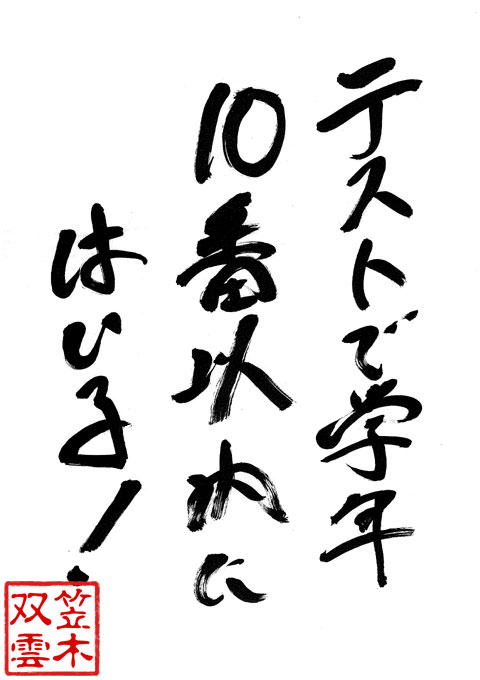 テストで学年
10番以内に
はいる!
笠木
双雲